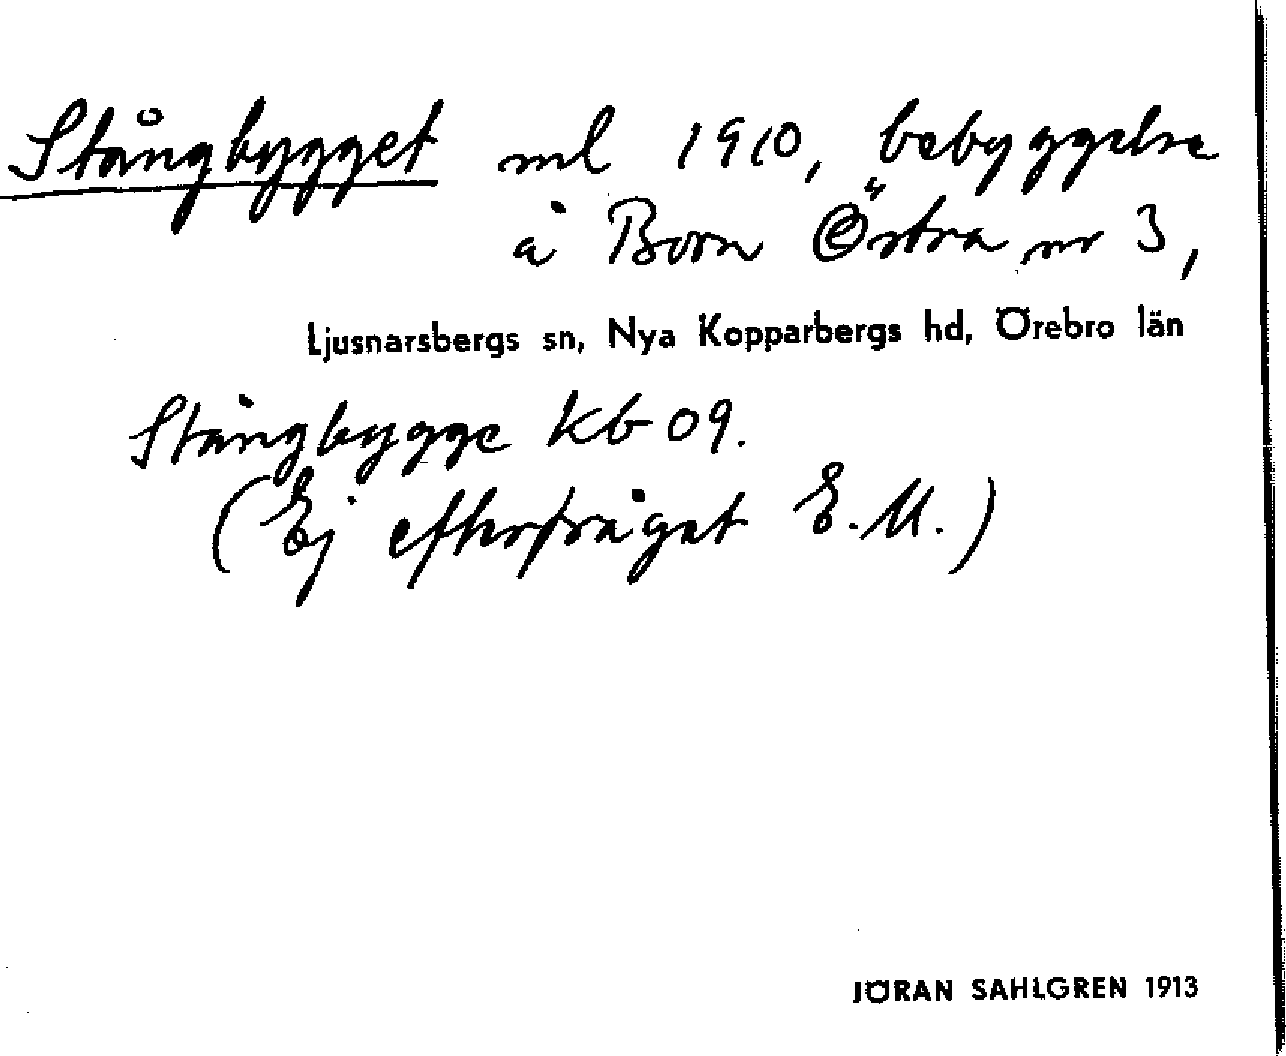 Stångbygget ml 1910, bebyggelse
å Born Östra nr 3,
Ljusnarsbergs sn, Nya Kopparbergs hd, Örebro län
Stångbygge Kb 09.
(Ej efterfråget E.M.)
JÖRAN SAHLGREN 1913